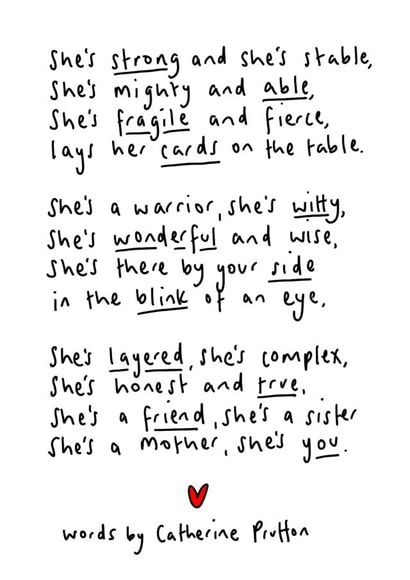 She's strong and she's stable,
She's mighty and able,
She's fragile and fierce,
lays her cards on the table.
She's a warrior, she's witty,
She's wonderful and wise,
She's there by your side
in the blink of an eye,
She's layered, she's complex,
She's honest and true,
She's a friend, she's a sister
She's a mother, she's you.
words by Catherine Prutton